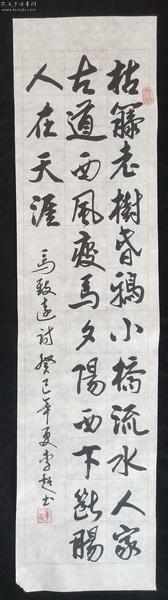 孔夫子旧书网
枯籐老樹昏鴉小橋流水人家
古道西風瘦馬夕陽西下斷腸
人在天涯
馬致遠詩癸巳年夏李书